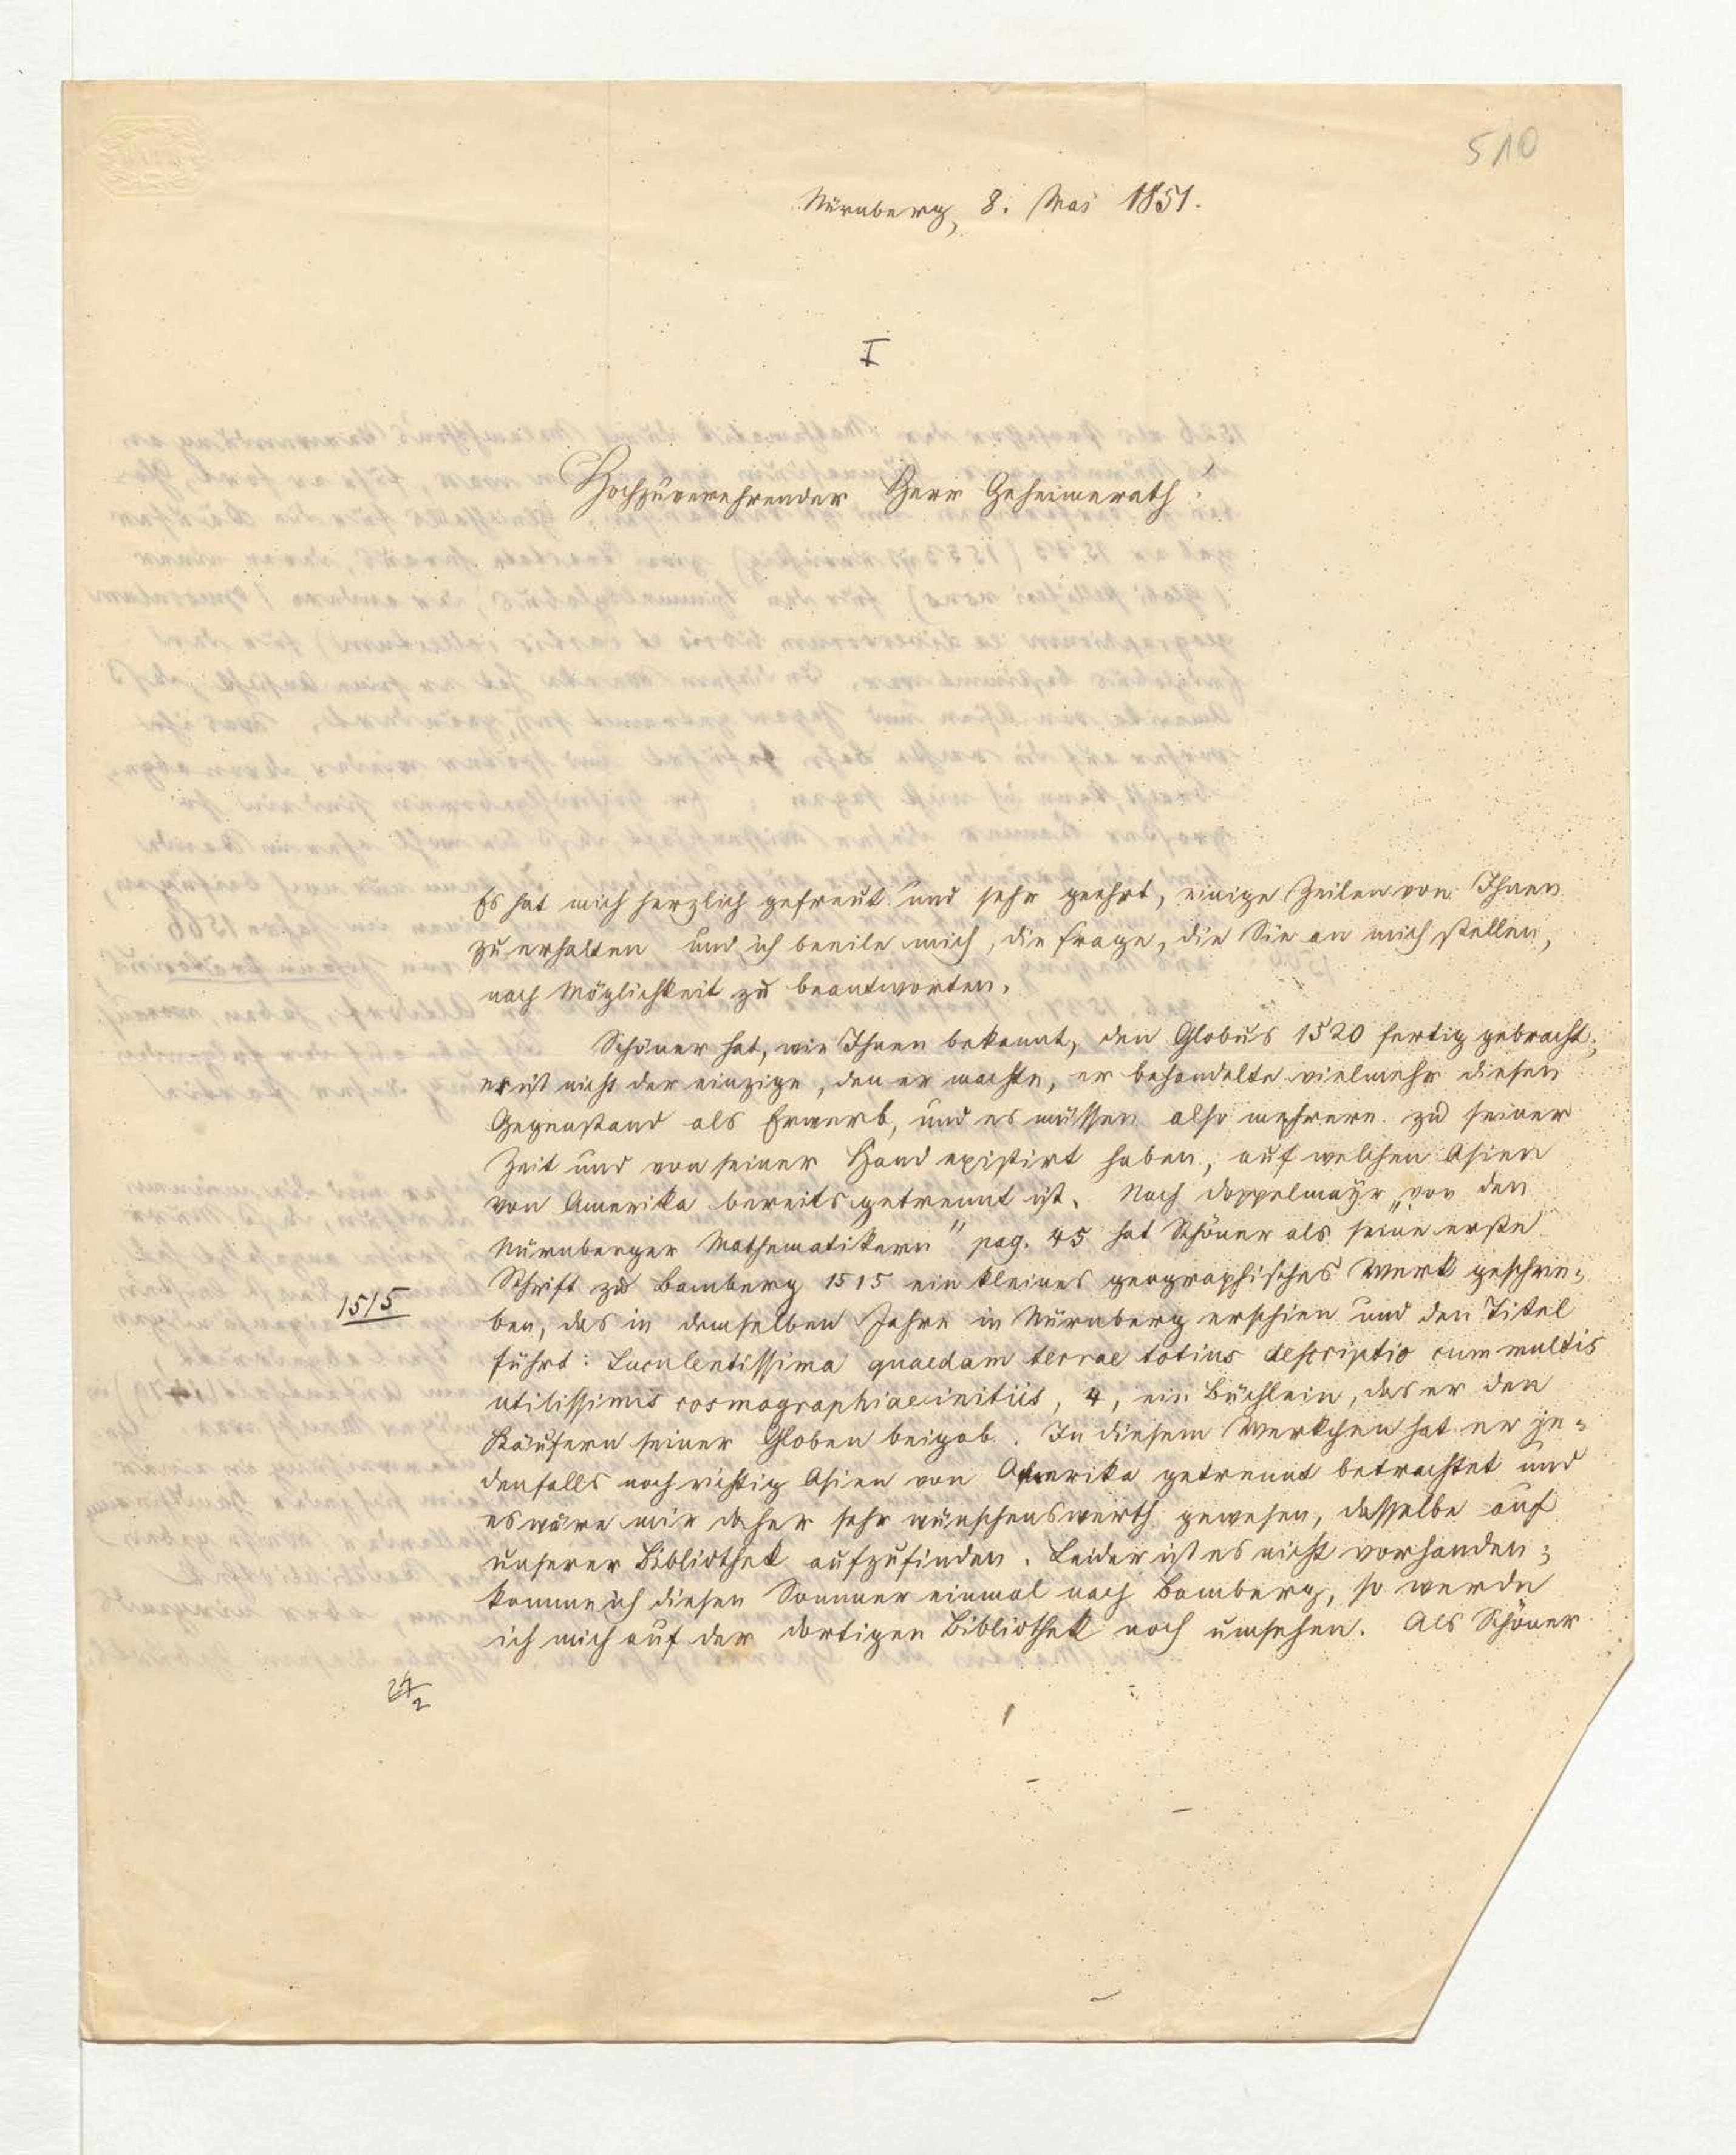 510
Nürnberg, 8. Mai 1851.
I
Hochzuverehrender Herr Geheimerath!
Es hat mich herzlich gefreut und sehr geehrt, einige Zeilen von Ihnen
zu erhalten und ich beeile mich, die Frage, die Sie an mich stellen,
nach Möglichkeit zu beantworten.
Schöner hat, wie Ihnen bekannt, den Globus 1520 fertig gebracht;
er ist nicht der einzige, den er machte, er behandelte vielmehr diesen
Gegenstand als Erwerb, und es müssen also mehrere zu seiner
Zeit und von seiner Hand existirt haben, auf welchen Asien
von Amerika bereits getrennt ist. Nach Doppelmayr „von den
Nürnberger Mathematikern" pag. 45 hat Schöner als seine erste
Schrift zu Bamberg 1515 ein kleines geographisches Werk geschrie-
1515
ben, das in demselben Jahre in Nürnberg erschien und den Titel
führt: Luculentissima quaedam terrae totius descriptio cum multis
utilissimis cosmographiae initiis, 4, ein Büchlein, das er den
Käufern seiner Globen beigab. In diesem Werkchen hat er je-
denfalls noch richtig Asien von Amerika getrennt betrachtet und
es wäre mir daher sehr wünschenswerth gewesen, dasselbe auf
unserer Bibliothek aufzufinden. Leider ist es nicht vorhanden;
komme ich diesen Sommer einmal nach Bamberg, so werde
ich mich auf der dortigen Bibliothek noch umsehen. Als Schöner